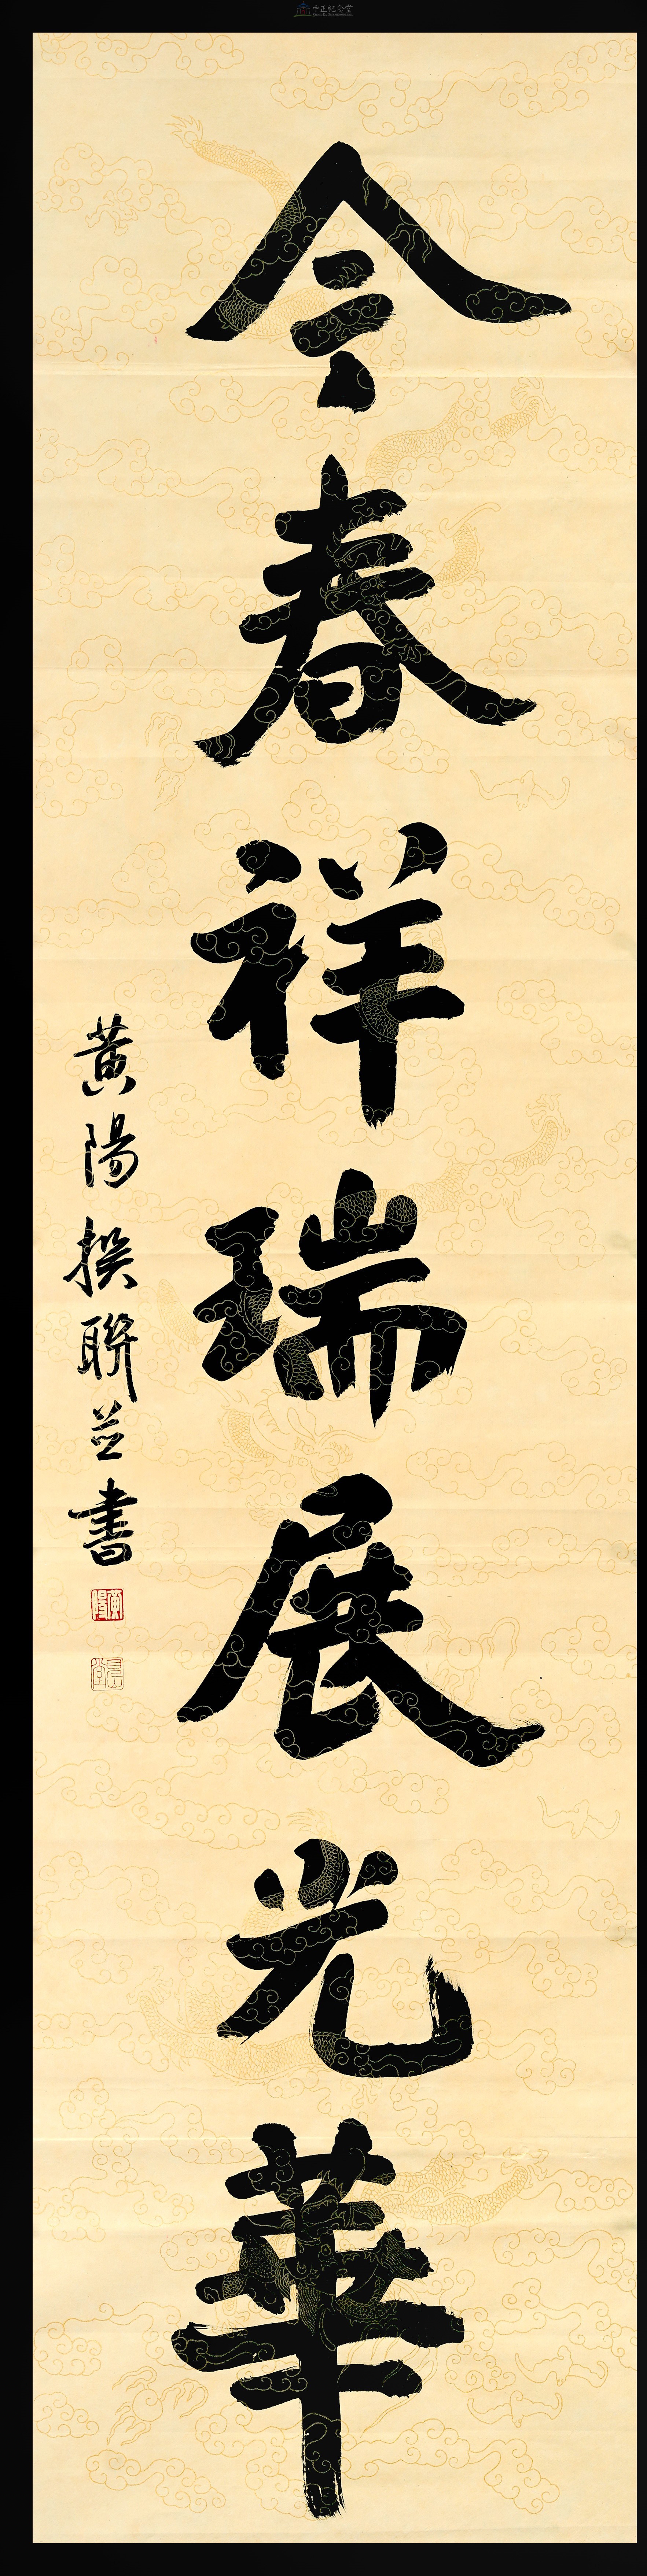 中正紀念堂
今春祥瑞展光華
黃陽撰聯並書